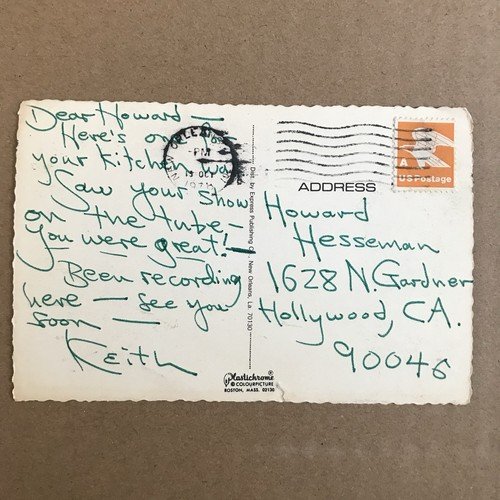 Dear Howard —
Here's one for
your kitchen wall
Saw your show
on the tube.
You were great! —
Been recording
here — see you
soon —
Keith
NEW ORLEANS
PM
13 OCT
Dist. by Express Publishing Co., New Orleans, LA 70130
Plastichrome®
© COLOURPICTURE
BOSTON, MASS. 02130
A
US Postage
ADDRESS
Howard
Hesseman
1628 N. Gardner
Hollywood, CA.
90046